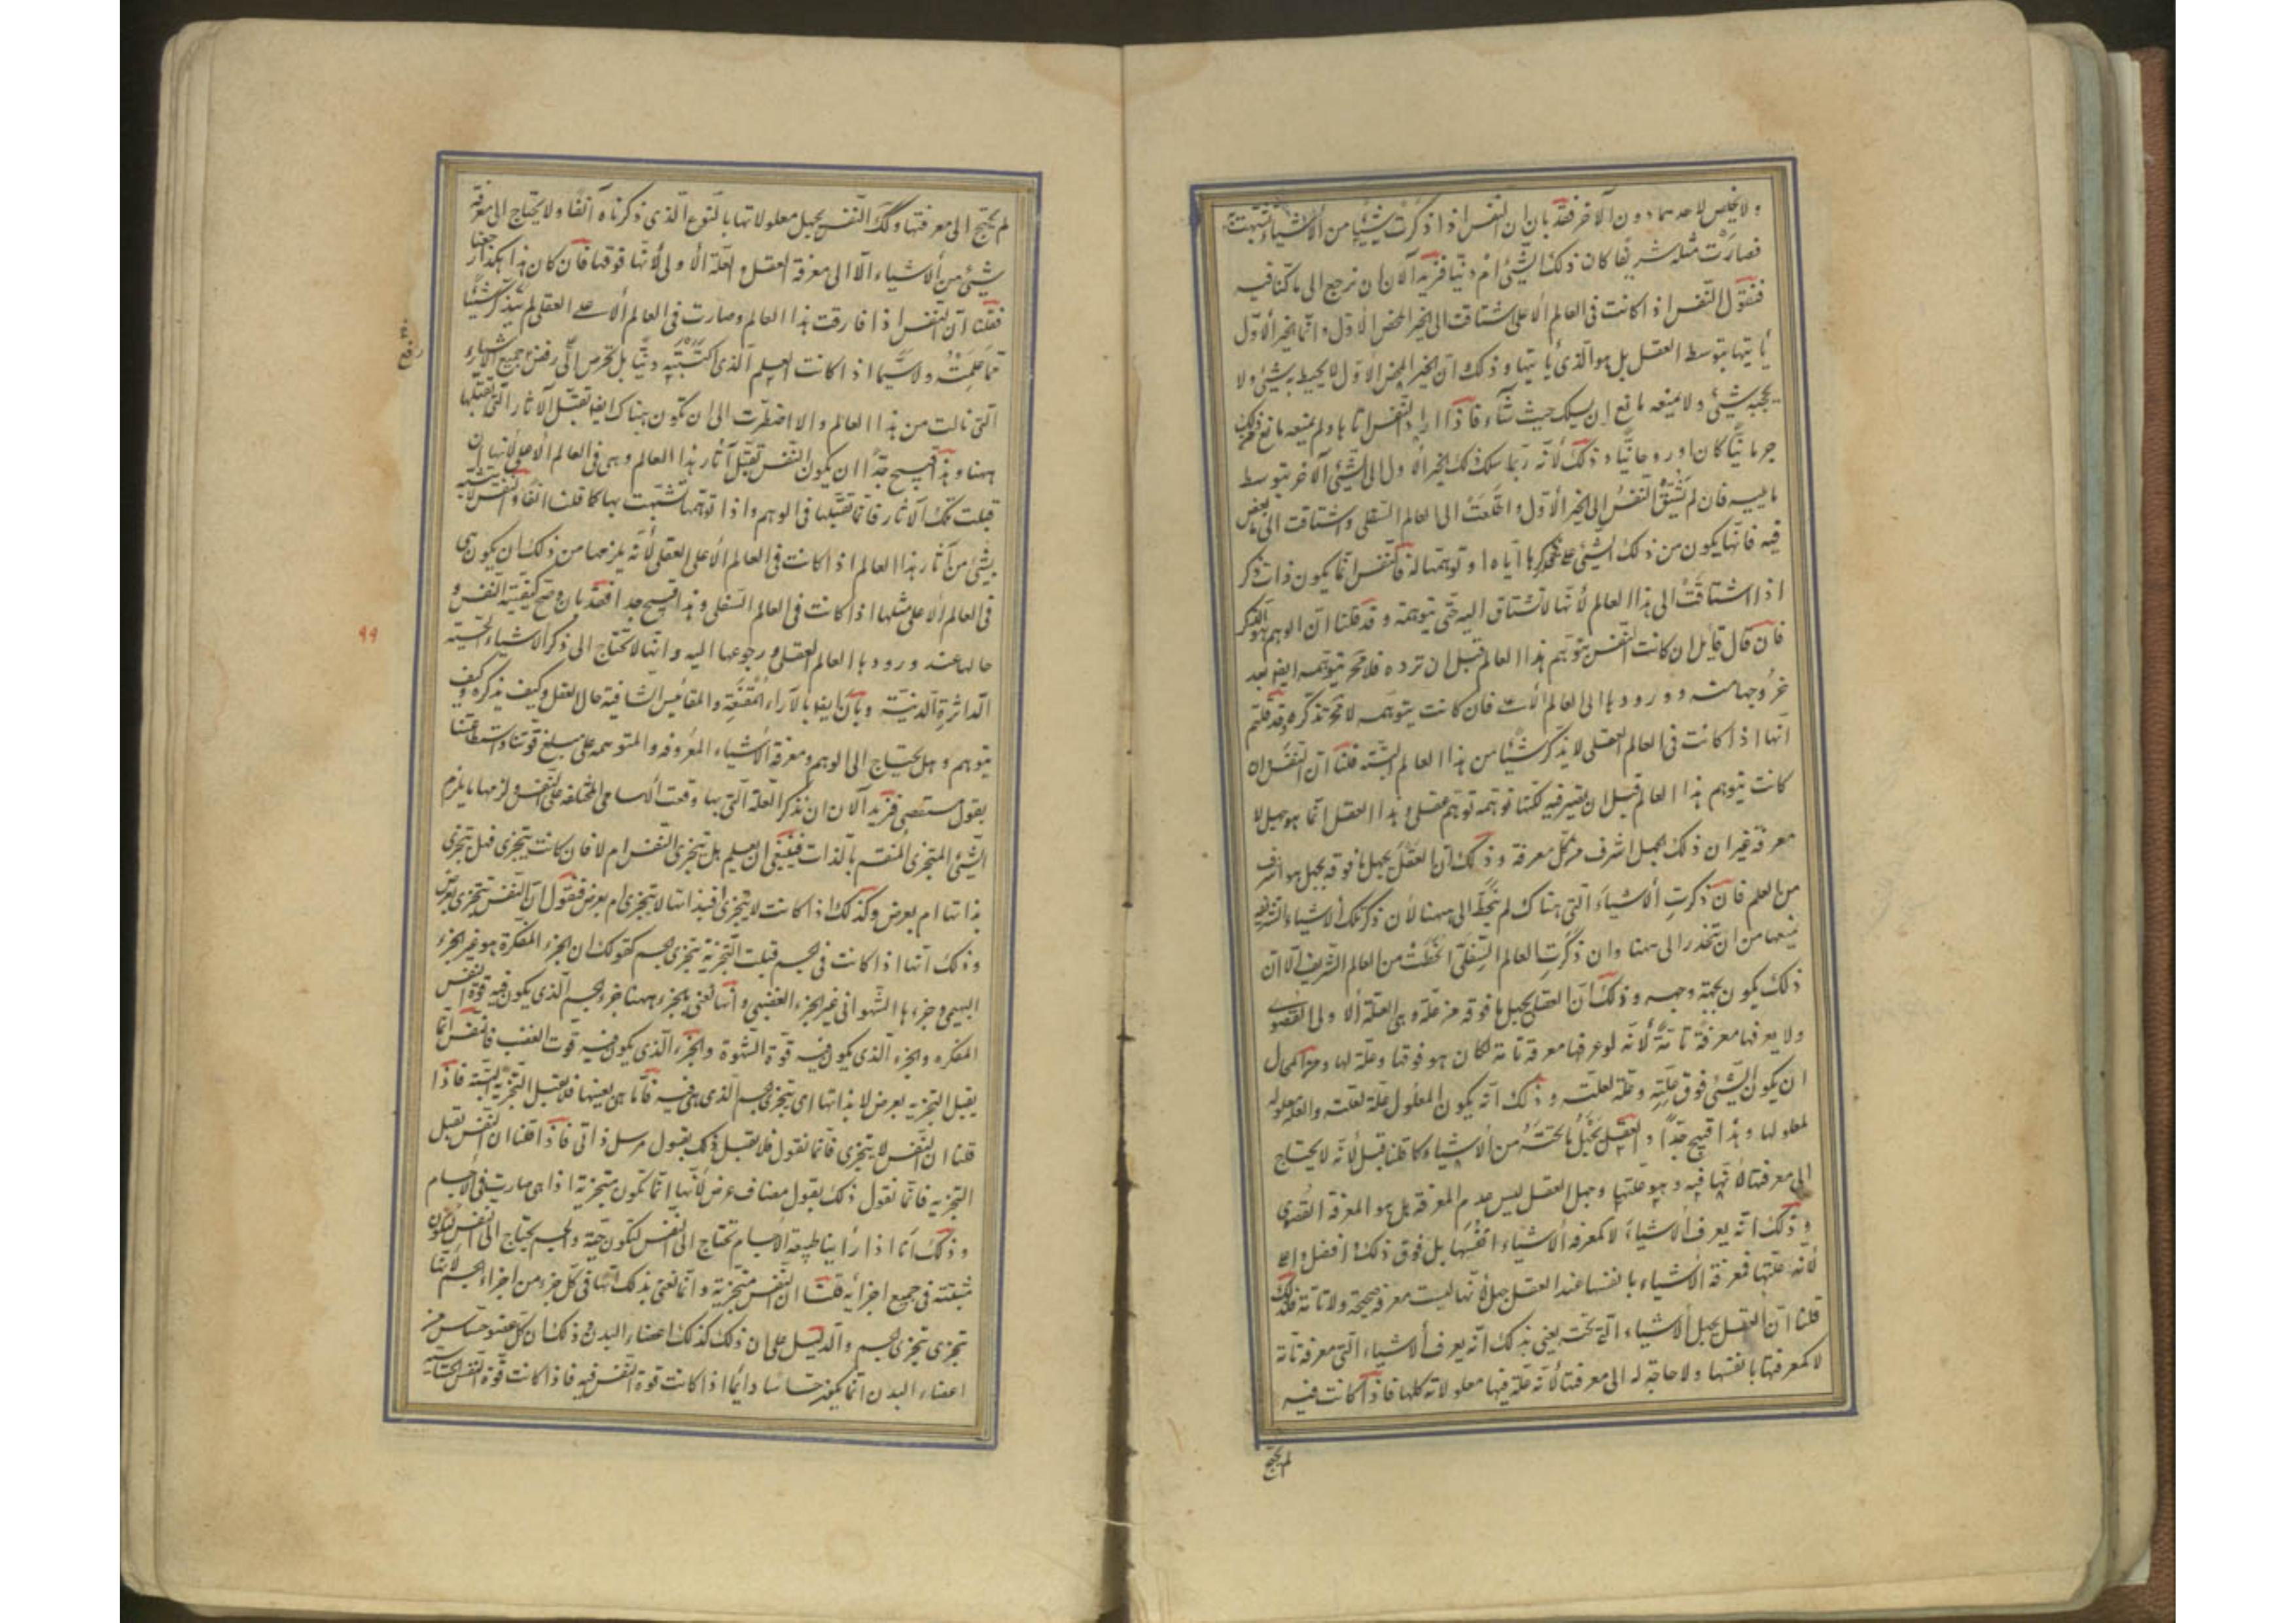 ولا يخلص لاحدهما دون الآخر فقد بان ان النفس اذا ذكرت شيئا من الأشياء تشبهت به
فصارت مثله شريفا كان ذلك الشئ ام دنيّا فنريد الآن ان نرجع الى ما كنا فيه
فنقول النفس اذا كانت فى العالم الأعلى اشتاقت الى الخير المحض الأول وانما الخير الأول
يأتيها بتوسط العقل بل هو الذى يأتيها وذلك ان الخير المحض الأول لا يحيط به شئ ولا
يحجبه شئ ولا يمنعه مانع ان يسلك حيث شاء فاذا اراد النفس اتاها ولم يمنعه مانع من ذلك
جرمانيّا كان او روحانيّا وذلك لأنه ربما سلك ذلك الخير الأول الى الشئ الآخر بتوسط
ما يليه فان لم تشتق النفس الى الخير الأول واطّلعت الى العالم السفلى واشتاقت الى بعض ما
فيه فانها يكون من ذلك الشئ على قدر ذكرها اياه او توهمها له فالنفس انما يكون ذات ذكر
اذا اشتاقت الى هذا العالم لأنها لا تشتاق اليه حتى يتوهمه وقد قلنا ان الوهم هو الذكر
فان قال قايل ان كانت النفس يتوهم هذا العالم قبل ان ترده فلا محة يتوهمه ايضا بعد
خروجها منه وورودها الى العالم الأعلى فان كانت يتوهمه لا محة تذكره وقد قلتم
انها اذا كانت فى العالم العقلى لا يذكر شيئا من هذا العالم البتة قلنا ان النفس وان
كانت يتوهم هذا العالم قبل ان يصير فيه لكنها توهمه توهم عقلى وهذا العقل انما هو جهل لا
معرفة غير ان ذلك الجهل اشرف من كل معرفة وذلك ان العقل يجهل ما فوقه بجهل هو اشرف
من العلم فان ذكرت الأشياء التى هناك لم تنحطّ الى ههنا لأن ذكر تلك الأشياء الشريفة
يمنعها من ان تنحدر الى ههنا وان ذكرت العالم السفلى انحطت من العالم الشريف الا ان
ذلك يكون بجهة وجهة وذلك ان العقل يجهل ما فوقه من علّته وهى العلة الأولى القصوى
ولا يعرفها معرفة تامّة لأنه لو عرفها معرفة تامة لكان هو فوقها وعلّة لها ومن المحال
ان يكون الشئ فوق علّته وعلّة لعلّته وذلك انه يكون المعلول علّة لعلته والعلة معلولة
لمعلولها وهذا قبيح جدّا والعقل يجهل ما تحته من الأشياء كما قلنا قبل لأنه لا يحتاج
الى معرفتها لأنها فيه وهو علّتها وجهل العقل ليس عدم المعرفة بل هو المعرفة القصوى
وذلك انه يعرف الأشياء لا كمعرفة الأشياء انفسها بل فوق ذلك وافضل واعلى
لأنه علّتها فمعرفة الأشياء بانفسها عند العقل جهل لأنها ليست معرفة صحيحة ولا تامّة فلذلك
قلنا ان العقل يجهل الأشياء التى تحته يعنى بذلك انه يعرف الأشياء التى معرفة تامّة
لا كمعرفتها بانفسها ولا حاجة له الى معرفتها لأنه علّة فيها معلولاته كلها فاذا كانت فيه
لم يحتج
لم يحتج الى معرفتها وكك النفس يجهل معلولاتها بالنوع الذى ذكرناه آنفا ولا يحتاج الى معرفة
شئ من الأشياء الا الى معرفة العقل والعلة الأولى لأنها فوقها فان كان هذا هكذا رجعنا
فقلنا ان النفس اذا فارقت هذا العالم وصارت فى العالم الأعلى العقلى لم يتذكر شيئا
مما علمته ولا سيّما اذا كانت العلم الذى اكتسبته دنيّا بل تحرص الى رفض جميع الأشياء
التى نالت من هذا العالم والا اضطرت الى ان تكون هناك ايضا تقبل الآثار التى تقبلها
ههنا وهذا قبيح جدّا ان يكون النفس تقبل آثار هذا العالم وهى فى العالم الأعلى لأنها ان
قبلت تلك الآثار فانما تقبلها فى الوهم واذا توهمتها تشبّهت بها كما قلنا آنفا والنفس لا يتشبه
بشئ من آثار هذا العالم اذا كانت فى العالم الأعلى العقلى لأنه يلزمها من ذلك ان يكون هى
فى العالم الأعلى مثلها اذا كانت فى العالم السفلى وهذا قبيح جدا فقد بان وصح كيفية النفس و
حالها عند ورودها العالم العقلى ورجوعها اليه وانها لا تحتاج الى ذكر الاشياء الحسّية
الداثرة الدنيّة وبان ايضا بالآراء المقنعة والمقائيس الشافية حال العقل وكيف يذكر وكيف
يتوهم وهل يحتاج الى الوهم ومعرفة الأشياء المعروفة والمتوهمة على مبلغ قوتنا واستطاعتنا
بقول مستقصى فنريد الآن ان نذكر العلة التى بها وقعت الأسامى المختلفة على النفس ولزمها ما يلزم
الشئ المتجزى المنقسم بالذات فينبغى ان يعلم هل يتجزى النفس ام لا فان كانت يتجزى فهل تتجزى
بذاتها ام بعرض وكذلك اذا كانت لا يتجزى أفبذاتها لا يتجزى ام بعرض فنقول ان النفس يتجزى بعرض
وذلك انها اذا كانت فى الجسم قبلت التجزئة بتجزى الجسم كقولك ان الجزء المفكرة هو غير الجزء
البهيمى وجزءها الشهوانى غير الجزء الغضبى وانما نعنى بالجزء ههنا جزء الجسم الذى يكون فيه قوة النفس
المفكره والجزء الذى يكون فيه قوة الشهوة والجزء الذى يكون فيه قوت الغضب فالنفس انما
يقبل التجزيه بعرض لا بذاتها اى بتجزى الجسم الذى هى فيه فاما هى بعينها فلا تقبل التجزية البتة فاذا
قلنا ان النفس لا يتجزى فانما نقول فلا يقبل ذلك بقول مرسل ذاتى فاذا قلنا ان النفس يقبل
التجزيه فانما نقول ذلك بقول مضاف عرض لأنها انما تكون متجزية اذا هى صارت فى الأجسام
وذلك انا اذا راينا طبيعة الأجسام تحتاج الى النفس لتكون حيّة والجسم يحتاج الى النفس ليكون
منبثّة فى جميع اجزائه قلنا ان النفس متجزية وانما نعنى بذلك انها فى كل جزء من اجزاء الجسم لأنها
تجزى بتجزى الجسم والدليل على ان ذلك كذلك اعضاء البدن وذلك ان كل عضو حسّاس من
اعضاء البدن انما يكون حسّاسا دائما اذا كانت قوة النفس فيه فاذا كانت قوة النفس الحسّاسة
٩٩